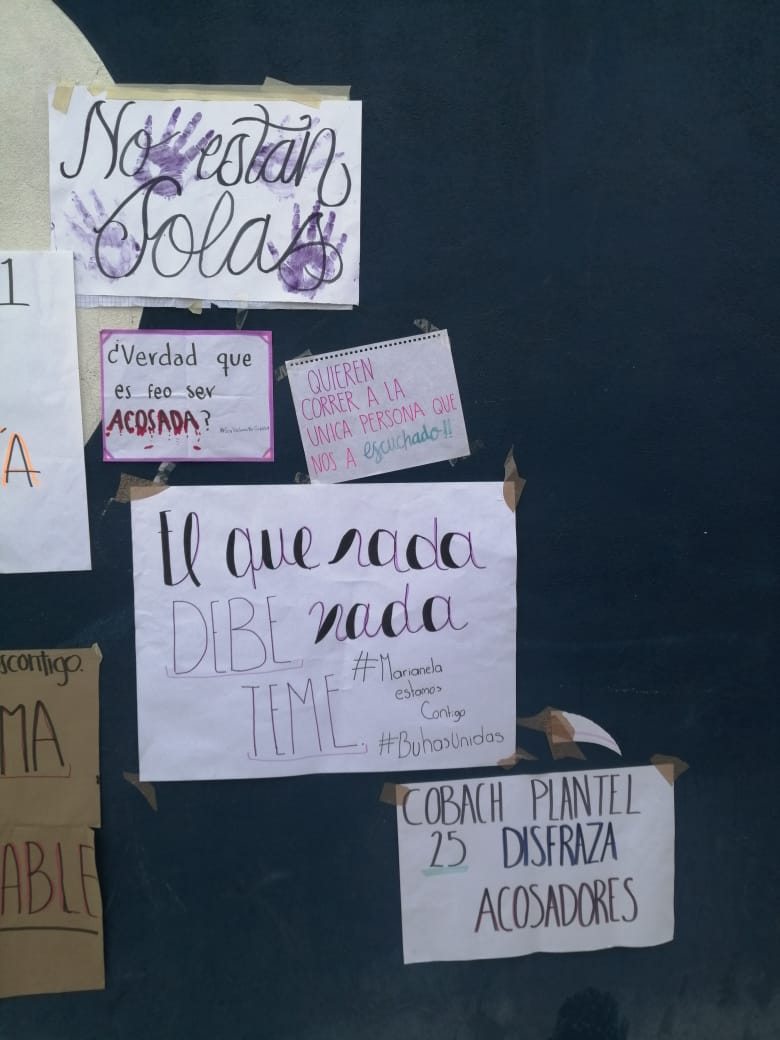 No están
Solas
1
¿Verdad que
es feo ser
ACOSADA?
QUIEREN
CORRER A LA
UNICA PERSONA QUE
NOS A escuchado!!
ÍA
El que nada
DEBE nada
TEME.
#Marianela
estamos
Contigo
#BuhasUnidas
scontigo.
MA
ABLE
COBACH PLANTEL
25 DISFRAZA
ACOSADORES